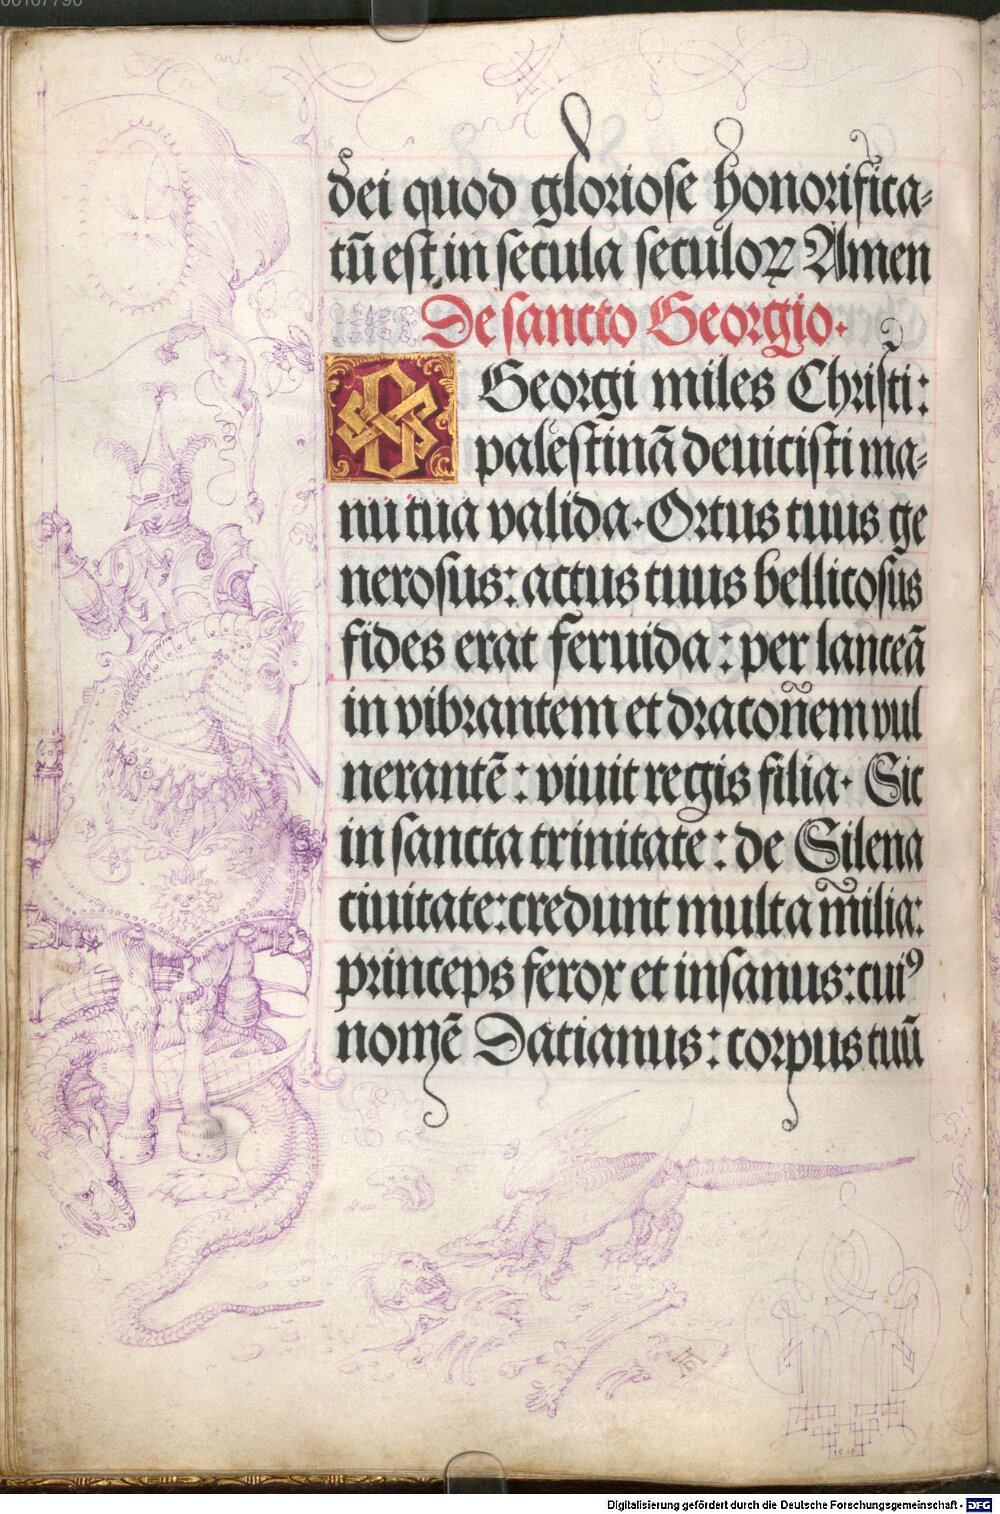 dei quod gloriose honorifica⸗
tū est in secula seculoꝝ Amen
De sancto Georgio.
Georgi miles Christi:
palestinā deuicisti ma⸗
nu tua valida. Ortus tuus ge
nerosus: actus tuus bellicosus
fides erat feruida: per lanceā
in vibrantem et draconem vul
nerantē: viuit regis filia. Sic
in sancta trinitate: de Silena
ciuitate: credunt multa milia:
princeps ferox et insanus: cuiꝰ
nomē Datianus: corpus tuū
Digitalisierung gefördert durch die Deutsche Forschungsgemeinschaft - DFG